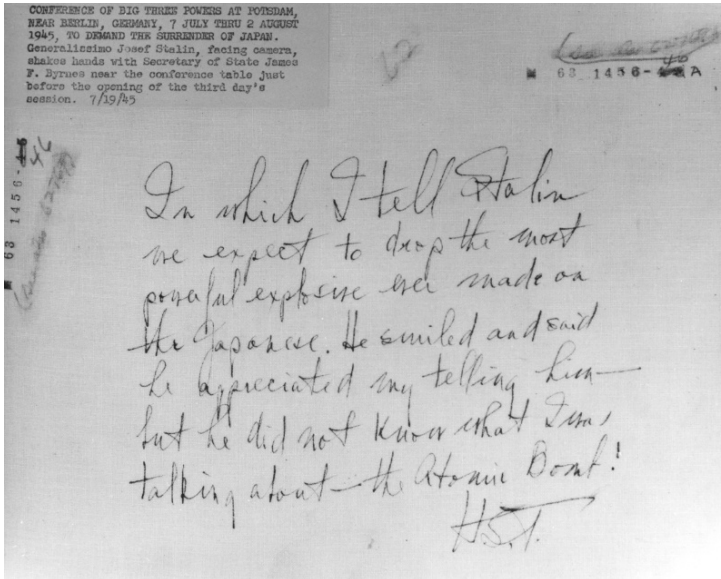 CONFERENCE OF BIG THREE POWERS AT POTSDAM,
NEAR BERLIN, GERMANY, 7 JULY THRU 2 AUGUST
1945, TO DEMAND THE SURRENDER OF JAPAN.
Generalissimo Josef Stalin, facing camera,
shakes hands with Secretary of State James
F. Byrnes near the conference table just
before the opening of the third day's
session. 7/19/45
63 1456-46A
63 1456-46
In which I tell Stalin
we expect to drop the most
powerful explosive ever made on
the Japanese. He smiled and said
he appreciated my telling him—
but he did not know what I was
talking about—the Atomic Bomb!
H.S.T.